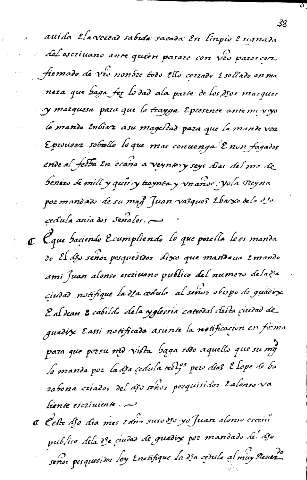 38
avida E la verdad sabida sacada En linpio E signada
del escrivano ante quien pasare con vro pareçer
firmado de vro nonbre todo ello cerrado E sellado en ma
nera que haga fee lo dad a la parte de los dhos marques
y marquesa para que lo trayga E presente ante mi y yo
lo mande Enbiar a su magestad para que la mande ver
E provea sobrello lo que mas convenga E non fagades
ende al fecha En ocaña a veynte y seys dias del mes de
henero de mill y quis y treynta y un años yo la Reyna
por mandado de su magt Juan vazques E baxo de la dha
cedula avia dos señales
E que haciendo E cumpliendo lo que por ella le es manda
do El dho señor pesquesidor dixo que mandava E mando
a mi Juan alonso escrivano publico del numero de la dha
ciudad notifique la dha cedula al señor obispo de guadix
E al dean E cabildo de la yglesia catedral desta ciudad de
guadix E asi notificada asiente la notificacion en forma
para que por su md vista haga todo aquello que su mgt
le manda por la dha cedula tos dios E lope de
criados del dho señor pesquisidor E alonso va
liente escriviente
E este dho dia mes E año suso dho yo Juan alonso escrivano
publico de la dha ciudad de guadix por mandado del dho
señor pesquisidor ley E notifique la dha cedula al muy Reverendo